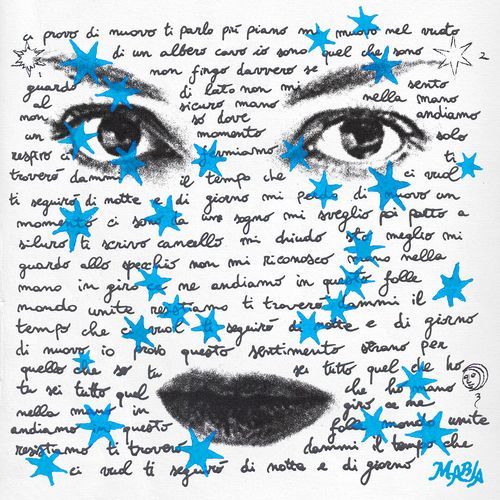 ci provo di nuovo ti parlo più piano mi muovo nel vuoto
di un albero cavo io sono quel che sono
1 non fingo davvero se 2
guardo di lato non mi sento
al sicuro mano nella mano
non so dove andiamo
un momento solo
respiro ci fermiamo ti
troverò dammi il tempo che ci vuol
ti seguirò di notte e di giorno mi perdo di nuovo un
momento ci sono la uno sogno mi sveglio poi parto a
siluro ti scrivo cancello mi chiudo sto meglio mi
guardo allo specchio non mi riconosco mano nella
mano in giro ce me andiamo in questo folle
mondo unite resistiamo ti troverò dammi il
tempo che ci vuol ti seguirò di notte e di giorno
di nuovo io provo questo sentimento strano per
quello che so tu sei tutto quel che ho
tu sei tutto quel che ho mano
nella mano in giro ce me 3
andiamo in questo folle mondo unite
resistiamo ti troverò dammi il tempo che
ci vuol ti seguirò di notte e di giorno
MABLA